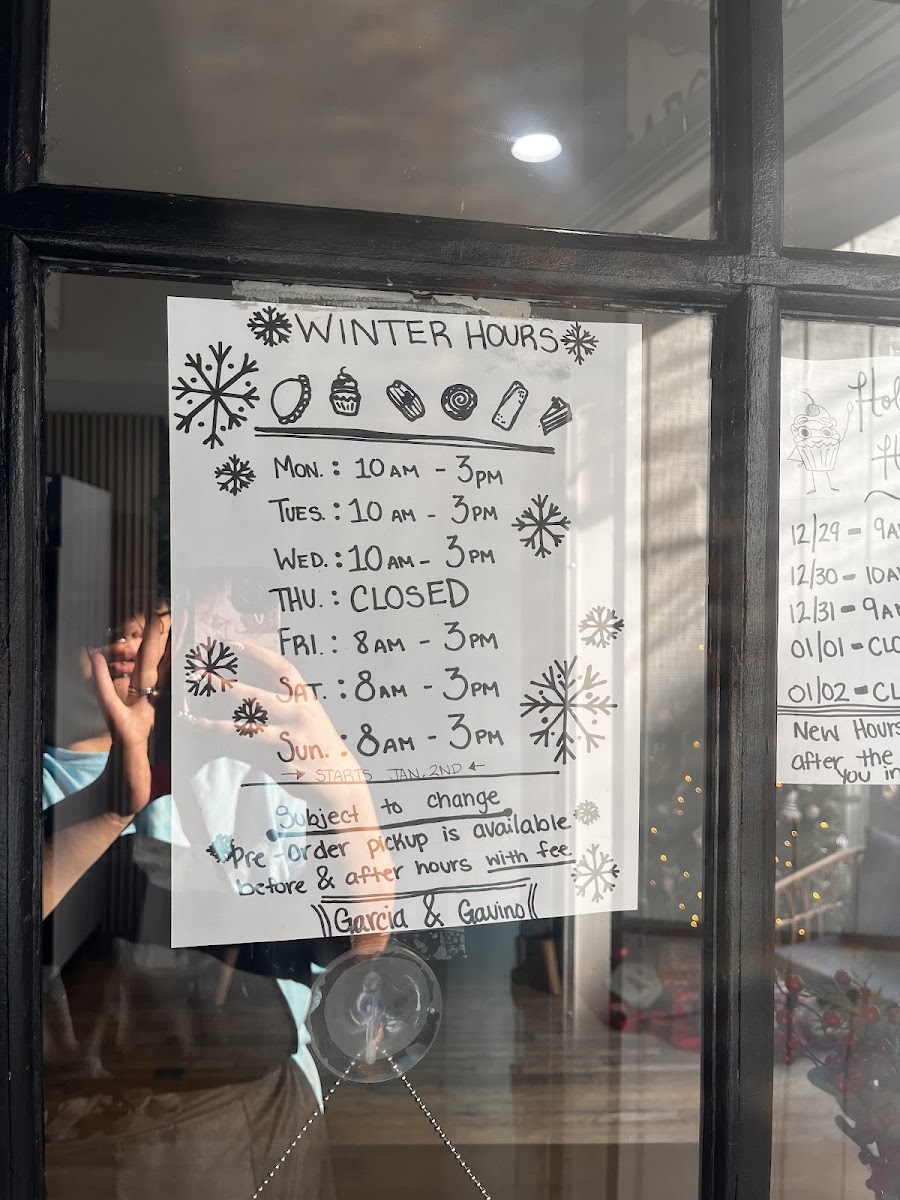 WINTER HOURS
MON. : 10 AM - 3PM
TUES. : 10 AM - 3PM
WED. : 10 AM - 3PM
THU. : CLOSED
FRI. : 8AM - 3PM
SAT. : 8AM - 3PM
SUN. : 8AM - 3PM
→ STARTS JAN. 2ND ←
Subject to change
Pre-Order pickup is available
before & after hours with fee
Garcia & Gavino
12/29 - 9A
12/30 - 10A
12/31 - 9A
01/01 - CLO
01/02 - CL
New Hours
after the
you in